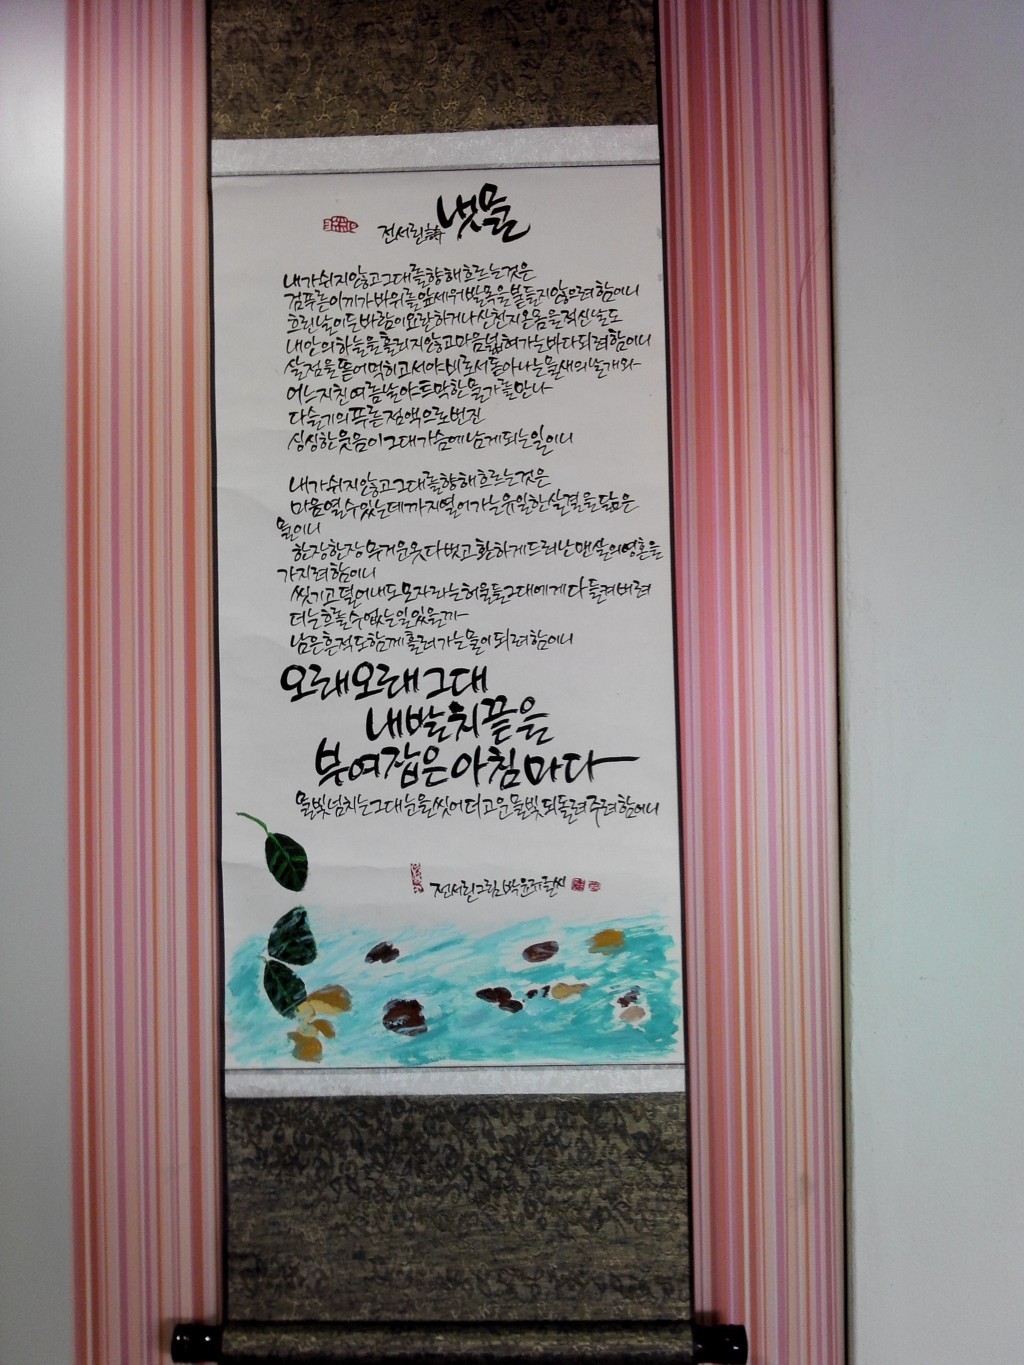 냇물
전서린 詩
내가 쉬지 않고 그대를 향해 흐르는 것은
검푸른 이끼가 바위를 앞세워 발목을 붙들지 않으려 함이니
흐린 날이든 바람이 요란하거나 산천지 온몸을 적신 날도
내 안의 하늘을 흘리지 않고 마음 넓혀가는 바다 되려 함이니
살점을 뜯어 먹히고서야 비로서 돋아나는 물새의 날개와
어느 지친 여름날 야트막한 물가를 만나
다슬기의 푸른 점액으로 번진
싱싱한 웃음이 그대 가슴에 남게 되는 일이니
내가 쉬지 않고 그대를 향해 흐르는 것은
마음 열 수 있는 데까지 열어가는 유일한 살결을 닮은
물이니
한장 한장 무거운 옷 다 벗고 환하게 드러난 맨살의 영혼을
가지려 함이니
씻기고 덜어내도 모자라는 허물들 그대에게 다 들켜버려
더는 흐를 수 없는 일 있을까
남은 흔적도 함께 흘러가는 물이 되려 함이니
오래오래 그대
내 발뒤끝을
부여잡은 아침마다
물빛 넘치는 그대 눈을 씻어 더 고운 물빛 되돌려 주려 함이니
전서린 그림 박윤규 글씨